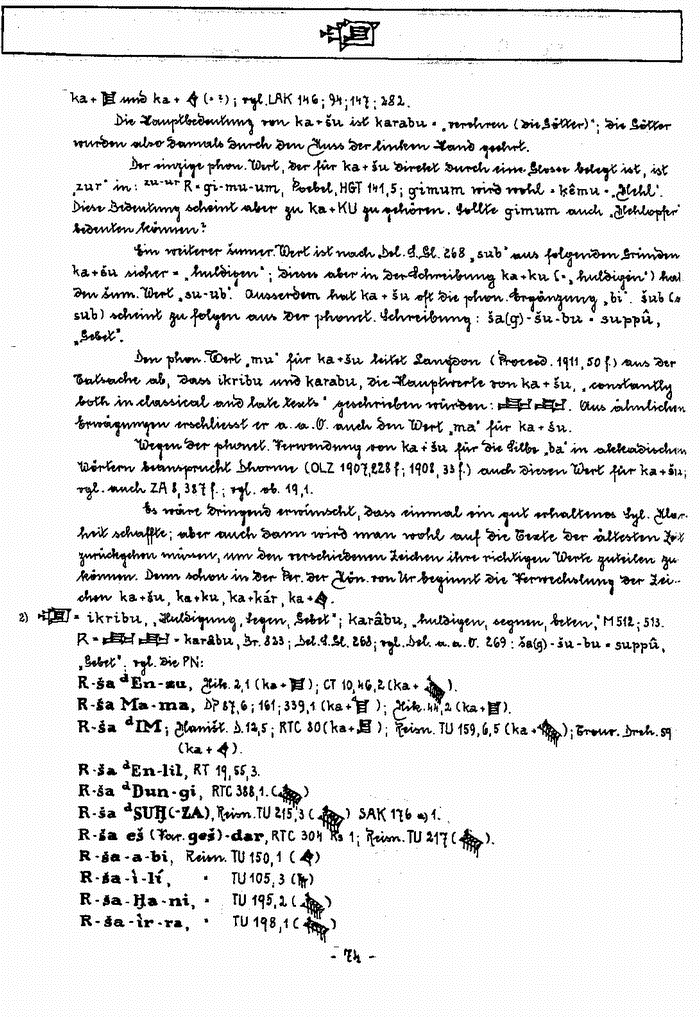 ka + und ka + (= ?) ; vgl. LAK 146 ; 94 ; 147 ; 282.
Die Hauptbedeutung von ka + šu ist karabu = „verehren (die Götter)“ ; die Götter
wurden also damals durch den Kuss der linken Hand geehrt.
Der einzige phon. Wert, der für ka + šu direkt durch eine Glosse belegt ist, ist
„zur“ in : zu-ur R = gi-mu-um, Poebel, HGT 141,5 ; gimum wird wohl = kêmu = „Mehl“.
Diese Bedeutung scheint aber zu ka + KU zu gehören. Sollte gimum auch „Mehlopfer“
bedeuten können ?
Ein weiterer šumer. Wert ist nach Del. S. Gl. 268 „sub“ aus folgenden Gründen
ka + šu sicher = „huldigen“ ; dieses aber in der Schreibung ka + ku (= „huldigen“) hat
den šum. Wert „su-ub“. Ausserdem hat ka + šu oft die phon. Ergänzung „bi“. šub (=
sub) scheint zu folgen aus der phonet. Schreibung : ša(g) - šu - bu = suppû,
„Gebet“.
Den phon. Wert „mu“ für ka + šu leitet Langdon (Proceed. 1911, 50 f.) aus der
Tatsache ab, dass ikribu und karabu, die Hauptwerte von ka + šu, „constantly
both in classical and late texts“ geschrieben würden : . Aus ähnlichen
Erwägungen erschliesst er a. a. O. auch den Wert „ma“ für ka + šu.
Wegen der phonet. Verwendung von ka + šu für die Silbe „ba“ in akkadischen
Wörtern beansprucht Dhorme (OLZ 1907, 228 f ; 1908, 33 f.) auch diesen Wert für ka + šu ;
vgl. auch ZA 8, 387 f. ; vgl. ob. 19,1.
Es wäre dringend erwünscht, dass einmal ein gut erhaltenes Syl. Klar-
heit schaffte ; aber auch dann wird man wohl auf die Texte der ältesten Zeit
zurückgehen müssen, um den verschiedenen Zeichen ihre richtigen Werte zuteilen zu
können. Denn schon in der Per. der Kön. von Ur beginnt die Verwechslung der Zei-
chen ka + šu, ka + ku, ka + kár, ka + .
2) = ikribu, „Huldigung, Segen, Gebet“ ; karâbu, „huldigen, segnen, beten,“ M 512 ; 513.
R = = karâbu, Br. 823 ; Del. S. Gl. 268 ; vgl. Del. a. a. O. 269 : ša(g) - šu - bu = suppû,
„Gebet“. vgl. die PN :
R - ša dEn - zu, Nik. 2,1 (ka + ) ; CT 10, 46, 2 (ka + ).
R - ša Ma - ma, DP 87,6 ; 161 ; 339,1 (ka + ) ; Nik. 44,2 (ka + ).
R - ša dIM ; Maništ. D. 12,5 ; RTC 80 (ka + ) ; Reisn. TU 159, 6,5 (ka + ) ; Dreh. 59
(ka + ).
R - ša dEn - lil, RT 19, 55, 3.
R - ša dDun - gi, RTC 388,1. ( )
R - ša dSUḪ(-ZA), Reisn. TU 215,3 ( ) SAK 176 1.
R - ša eš (Var. geš) - dar, RTC 304 Rs 1 ; Reisn. TU 217 ( ).
R - ša - a - bi, Reisn. TU 150,1 ( )
R - ša - ì - lí, " TU 105,3 ( )
R - ša - Ḫa - ni, " TU 195,2 ( )
R - ša - ìr - ra, " TU 198,1 ( )
- 74 -